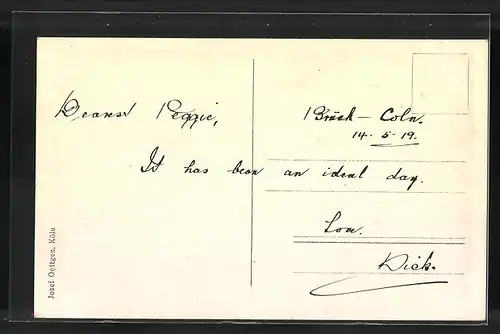 Dearest Peggie,
Brück - Coln.
14. 5. 19.
It has been an ideal day.
Love.
Dick.
Josef Oettgen, Köln